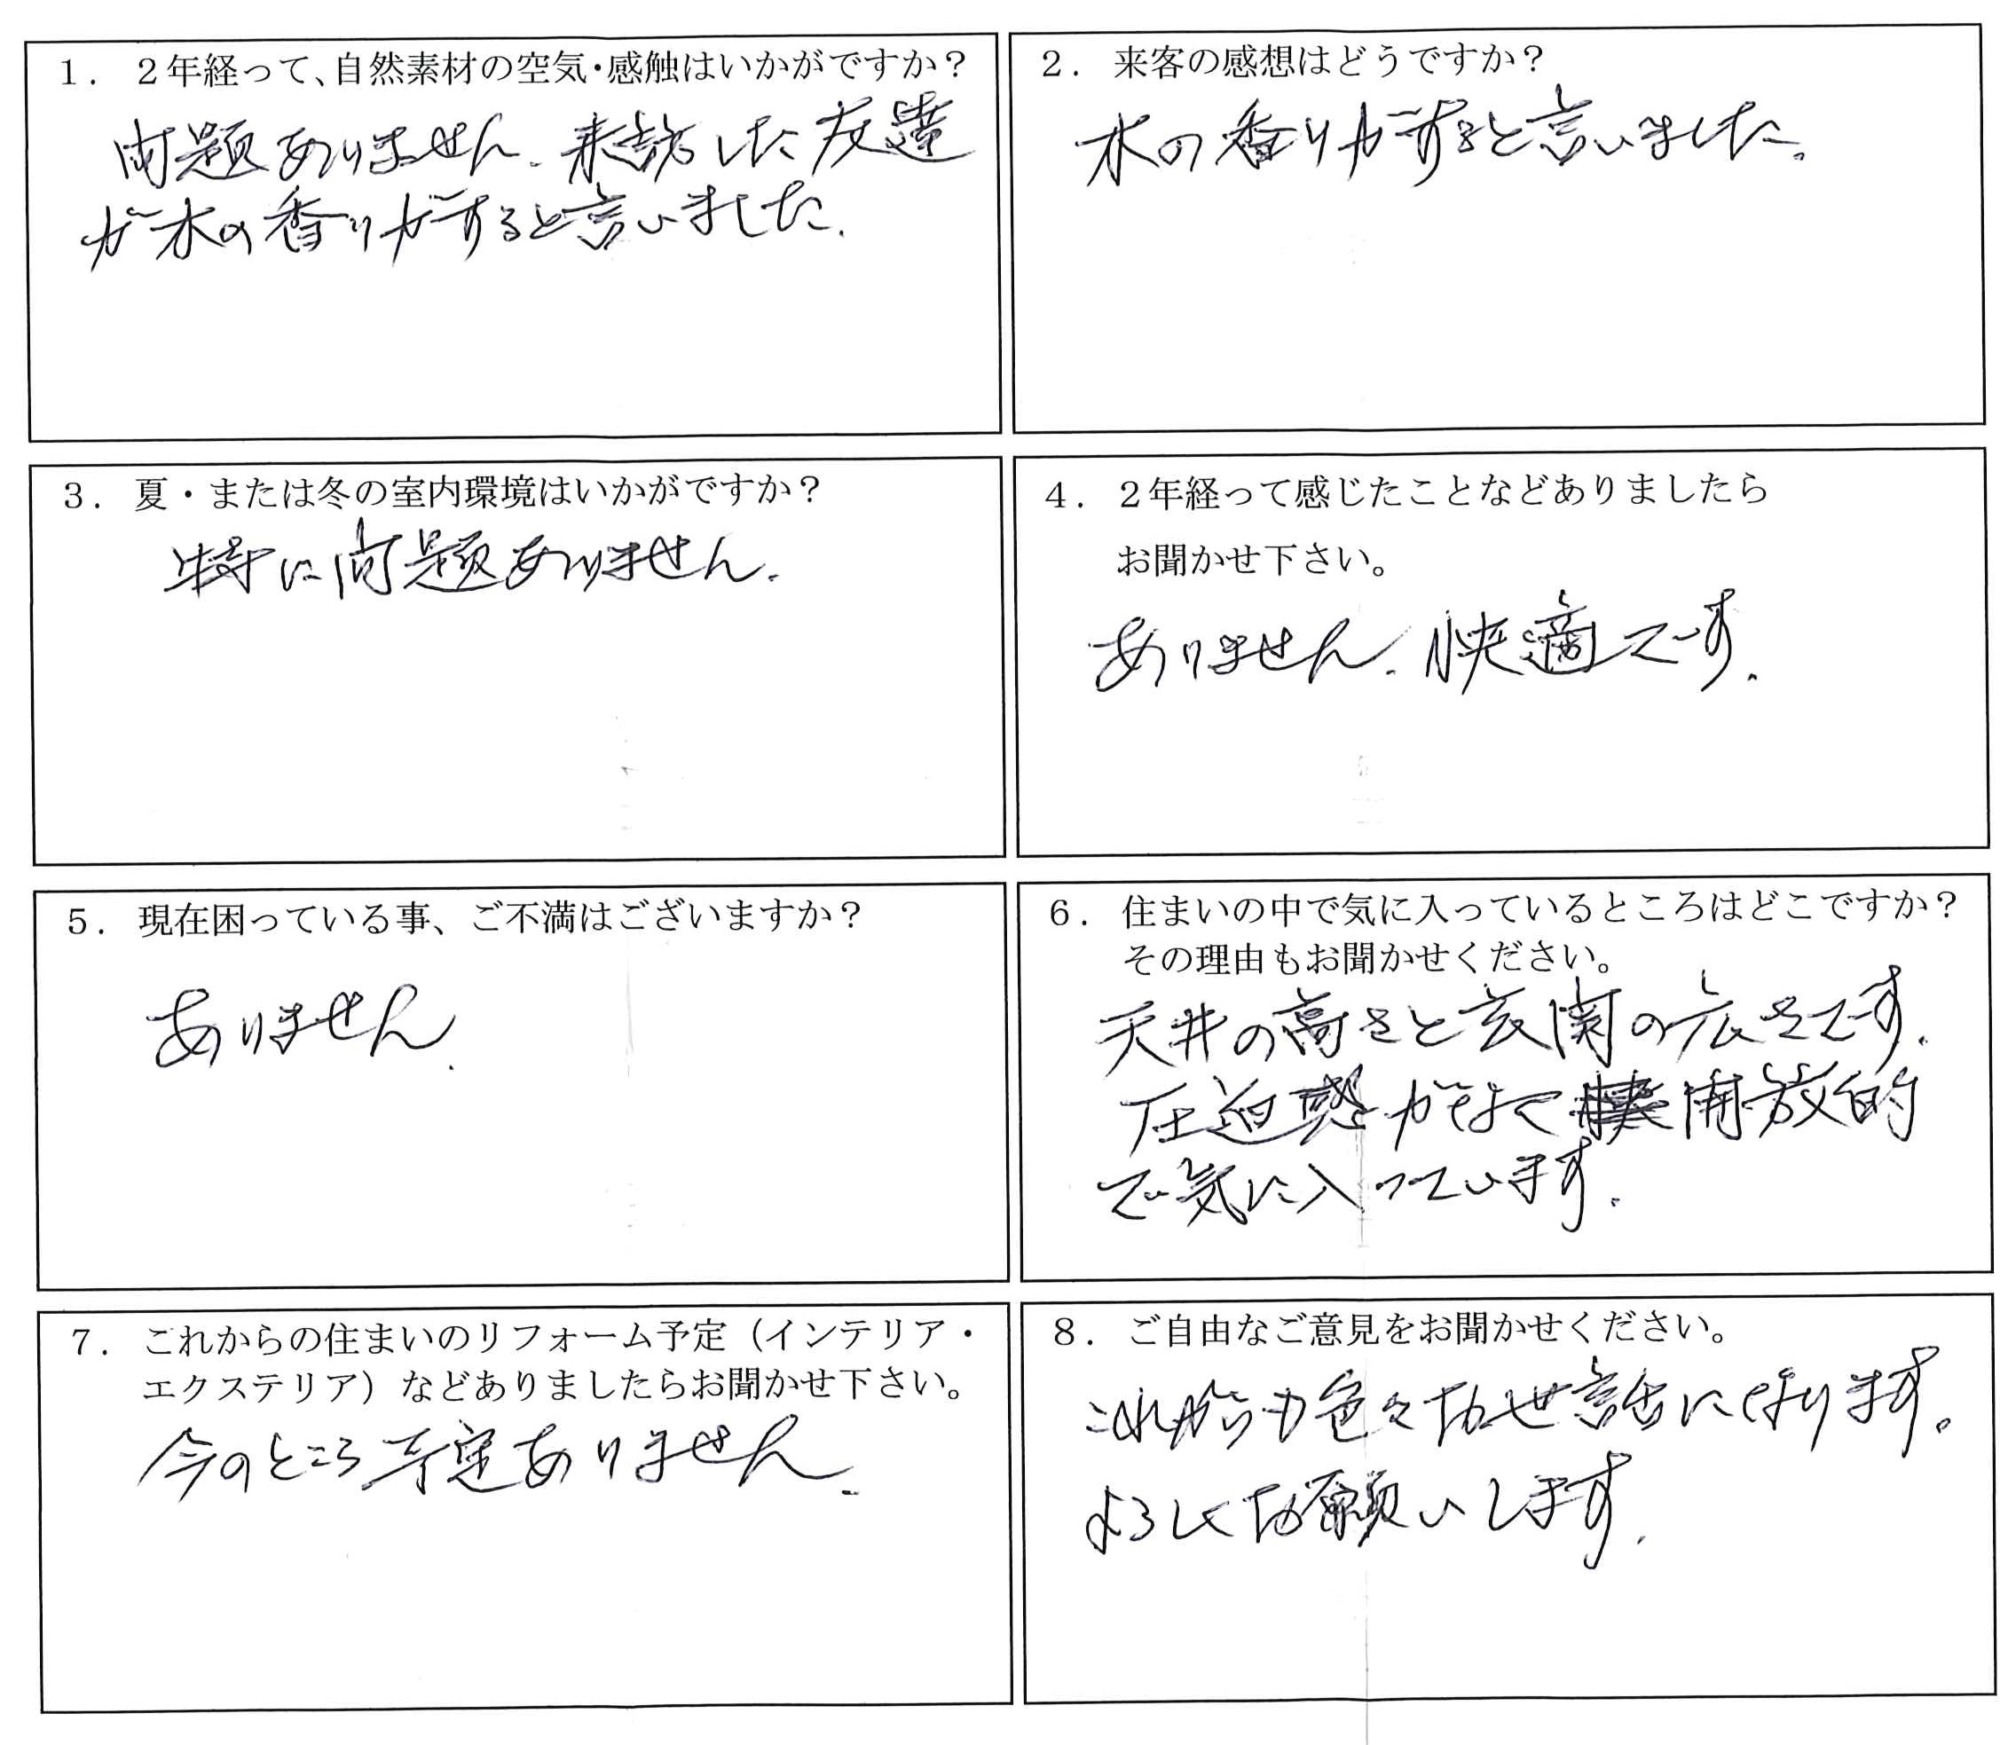 1. 2年経って、自然素材の空気・感触はいかがですか？
問題ありません. 来訪した友達
が木の香りがすると言いました.
2. 来客の感想はどうですか？
木の香りがすると言いました.
3. 夏・または冬の室内環境はいかがですか？
特に問題ありません.
4. 2年経って感じたことなどありましたら
お聞かせ下さい。
ありません. 快適です.
5. 現在困っている事、ご不満はございますか？
ありません.
6. 住まいの中で気に入っているところはどこですか？
その理由もお聞かせください。
天井の高さと玄関の広さです.
圧迫感がなく開放的
で気に入っています.
7. これからの住まいのリフォーム予定（インテリア・
エクステリア）などありましたらお聞かせ下さい。
今のところ予定ありません.
8. ご自由なご意見をお聞かせください。
これからも色々お世話になります。
よろしくお願いします.